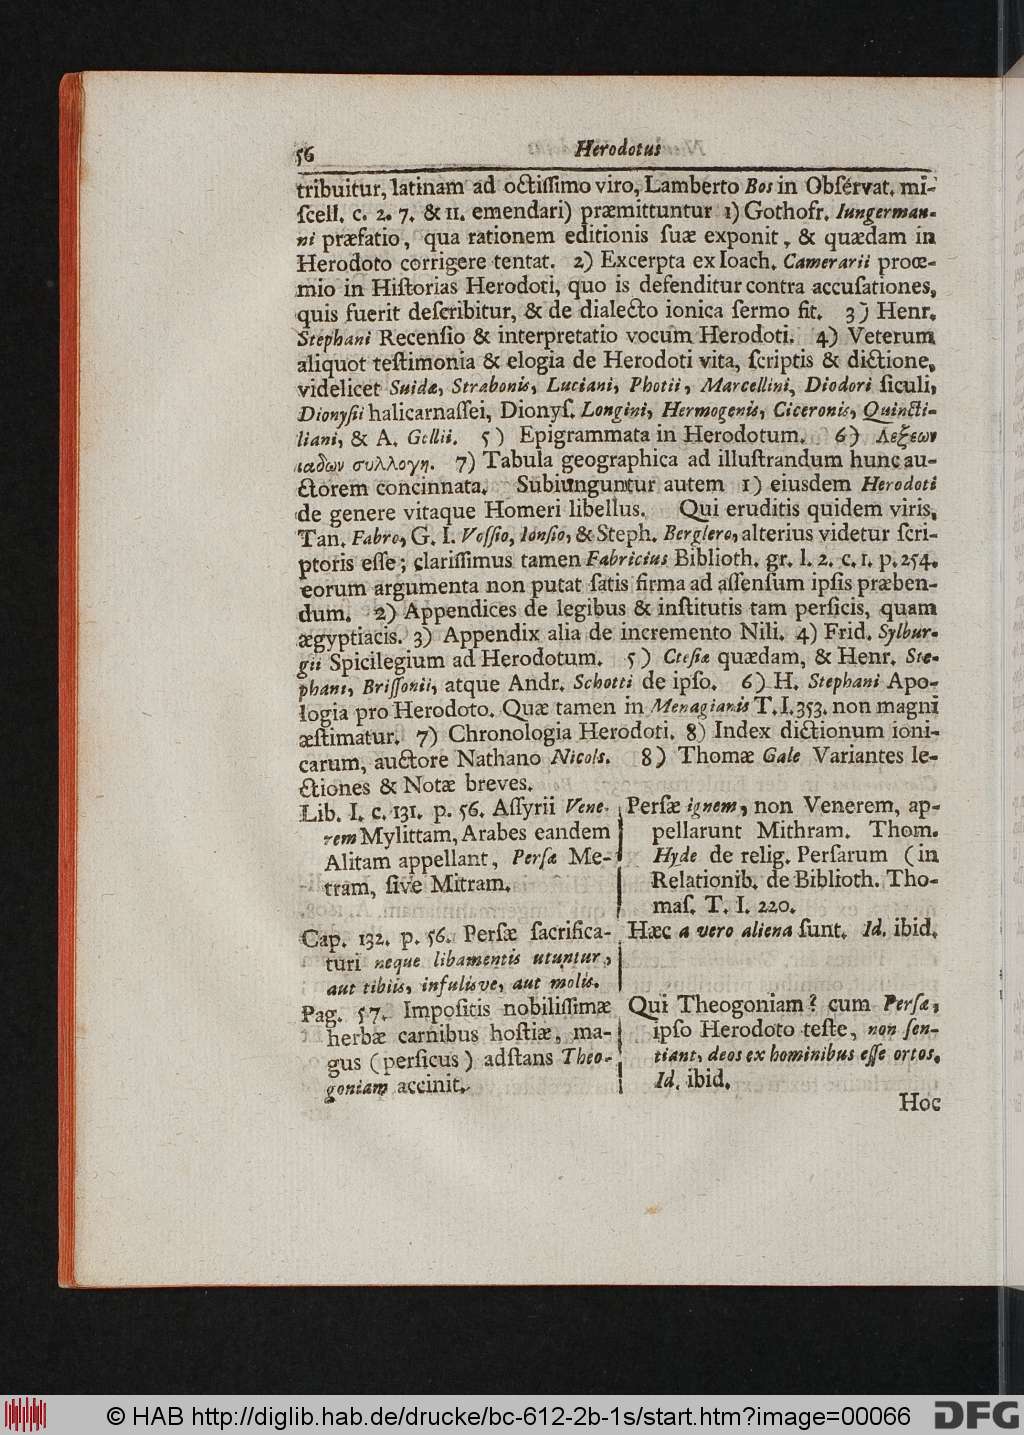 56 Herodotus
tribuitur, latinam ad octiſſimo viro, Lamberto Bos in Obſervat. mi-
ſcell. c. 2. 7. & 11. emendari) præmittuntur 1) Gothofr. Iungerman-
ni præfatio, qua rationem editionis ſuæ exponit, & quædam in
Herodoto corrigere tentat. 2) Excerpta ex Ioach. Camerarii proœ-
mio in Hiſtorias Herodoti, quo is defenditur contra accuſationes,
quis fuerit deſcribitur, & de dialecto ionica ſermo fit. 3) Henr.
Stephani Recenſio & interpretatio vocum Herodoti. 4) Veterum
aliquot teſtimonia & elogia de Herodoti vita, ſcriptis & dictione,
videlicet Suidæ, Strabonis, Luciani, Photii, Marcellini, Diodori ſiculi,
Dionyſii halicarnaſſei, Dionyſ. Longini, Hermogenis, Ciceronis, Quincti-
liani, & A. Gellii. 5) Epigrammata in Herodotum. 6) Λεξεων
ιαδων συλλογη. 7) Tabula geographica ad illuſtrandum hunc au-
ctorem concinnata. Subiunguntur autem 1) eiusdem Herodoti
de genere vitaque Homeri libellus. Qui eruditis quidem viris,
Tan. Fabro, G. I. Voſſio, Ionſio, & Steph. Berglero, alterius videtur ſcri-
ptoris eſſe; clariſſimus tamen Fabricius Biblioth. gr. l. 2. c. 1. p. 254.
eorum argumenta non putat ſatis firma ad aſſenſum ipſis præben-
dum. 2) Appendices de legibus & inſtitutis tam perſicis, quam
ægyptiacis. 3) Appendix alia de incremento Nili. 4) Frid. Sylbur-
gii Spicilegium ad Herodotum. 5) Cteſiæ quædam, & Henr. Ste-
phani, Briſſonii, atque Andr. Schotti de ipſo. 6) H. Stephani Apo-
logia pro Herodoto. Quæ tamen in Menagianis T. I. 353. non magni
æſtimatur. 7) Chronologia Herodoti. 8) Index dictionum ioni-
carum, auctore Nathano Nicols. 8) Thomæ Gale Variantes le-
ctiones & Notæ breves.
Lib. I. c. 131. p. 56. Aſſyrii Vene-
rem Mylittam, Arabes eandem
Alitam appellant, Perſæ Me-
tram, ſive Mitram.
Perſæ ignem, non Venerem, ap-
pellarunt Mithram. Thom.
Hyde de relig. Perſarum (in
Relationib. de Biblioth. Tho-
maſ. T. I. 220.
Cap. 132. p. 56. Perſæ ſacrifica-
turi neque libamentis utuntur,
aut tibiis, infulisve, aut molis.
Hæc a vero aliena ſunt. Id. ibid.
Pag. 57. Impoſitis nobiliſſimæ
herbæ carnibus hoſtiæ, ma-
gus (perſicus) adſtans Theo-
goniam accinit.
Qui Theogoniam? cum Perſæ,
ipſo Herodoto teſte, non ſen-
tiant, deos ex hominibus eſſe ortos.
Id. ibid.
Hoc
© HAB http://diglib.hab.de/drucke/bc-612-2b-1s/start.htm?image=00066
DFG